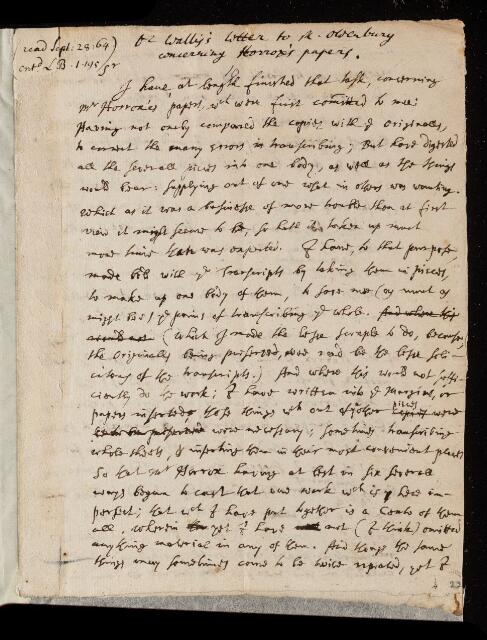 (read Sept: 28: 64)
ent^d L B · 1 · 195
Dr Wallis's letter to Mr Oldenburg
concerning Horrox's papers.
I have, at length finished that task, concerning
Mr Horrox's papers, wch were first comitted to me:
Having not onely compared the copies with ye originalls,
to correct the many errors in transcribing; But have digested
all the severall pieces into one body, as well as the things
would bear: supplying out of one what in others was wanting.
Which as it was a businesse of more trouble than at first
view it might seeme to be, so hath it taken up much
more time than was expected. I have, to that purpose,
made bold with ye Transcripts by taking them in pieces,
to make up one body of them, to save mee (as much as
might bee) ye pains of transcribing ye whole. And where this
would not (which I made the lesse scruple to do, because,
the originalls being preserved, there need be the lesse soli-
citous of the transcripts.) And where this would not suffi-
ciently do the work; I have written into ye Margins, or
papers inserted those things wch out of ye other pieces were
were necessary; sometimes transcribing
whole sheets, & inserting them in their most convenient places
So that Mr Horrox having at lest in six severall
ways begun to cast that one work wch is yet left im-
perfect; that wch I have put together is a Comb of them
all. Wherein yet I have not (I think) omitted
any thing material in any of them. And though the same
things may sometimes come to be twice repeated, yet I